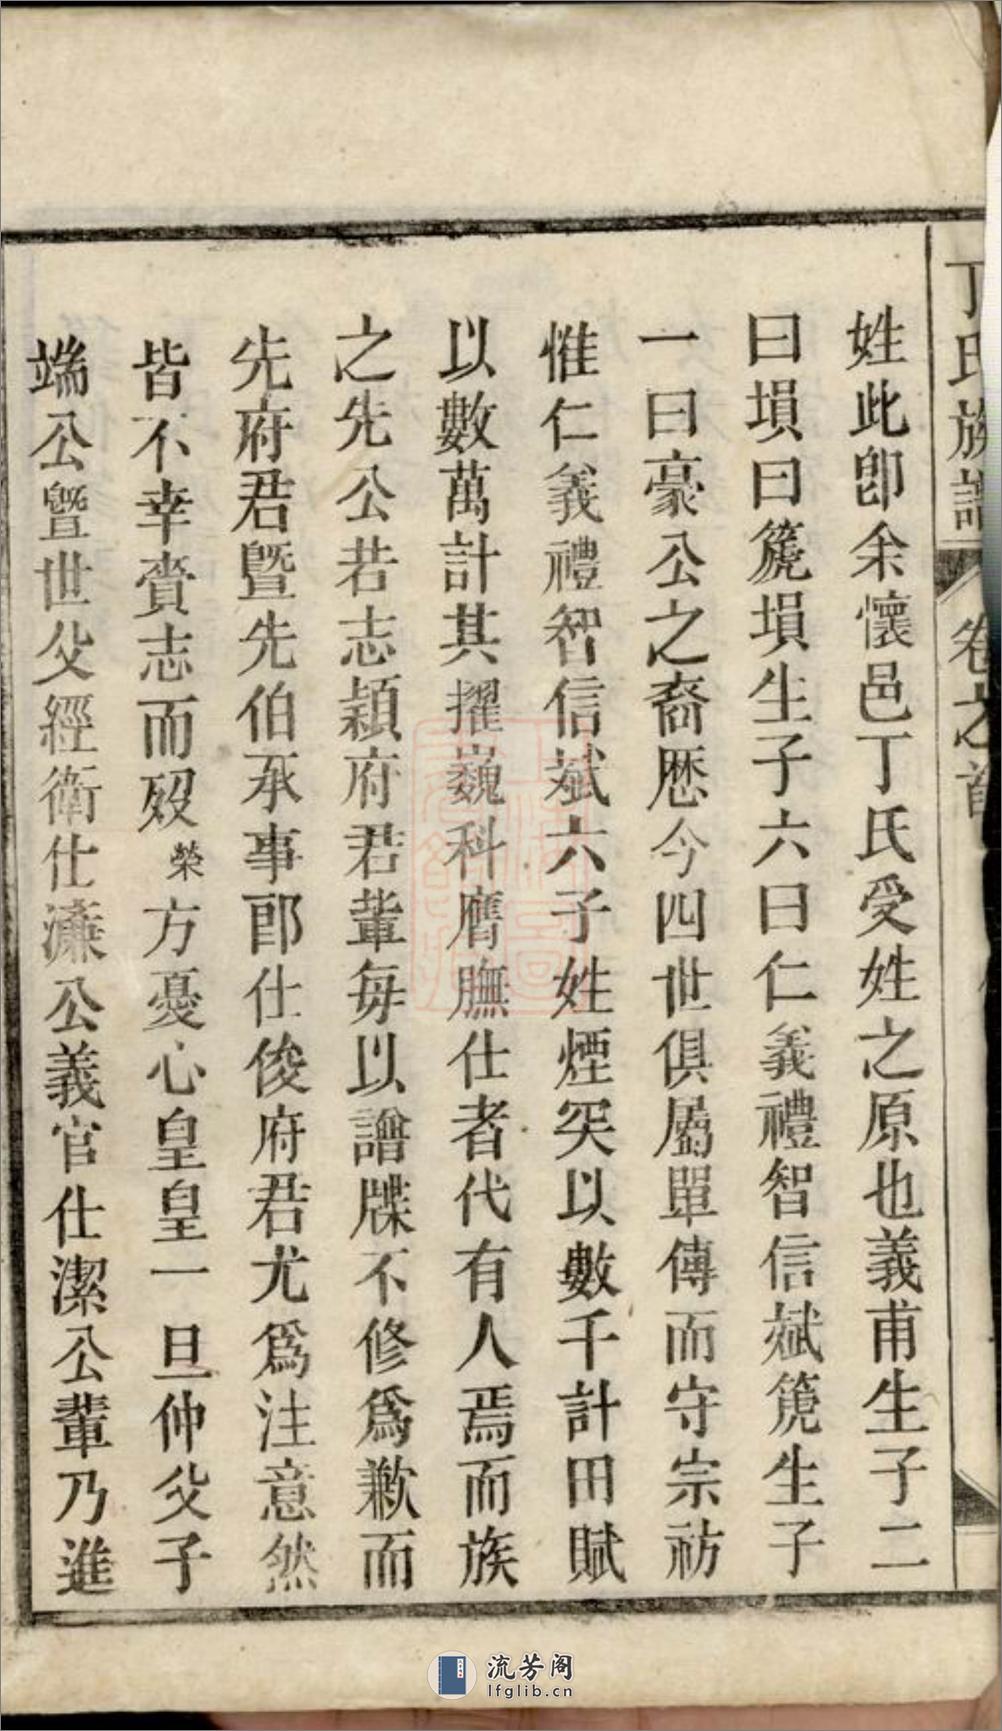 丁氏族譜 卷之首
姓此卽余懷邑丁氏受姓之原也義甫生子二
曰塤曰篪塤生子六曰仁義禮智信斌篪生子
一曰豪公之裔歷今四世俱屬單傳而守宗祊
惟仁義禮智信斌六子姓煙突以數千計田賦
以數萬計其擢巍科膺膴仕者代有人焉而族
之先公若志穎府君輩每以譜牒不修爲歉而
先府君曁先伯承事郎仕俊府君尤爲注意然
皆不幸賫志而歿榮方憂心皇皇一旦仲父子
端公曁世父經衛仕濂公義官仕潔公輩乃進
流芳阁
lfglib.cn